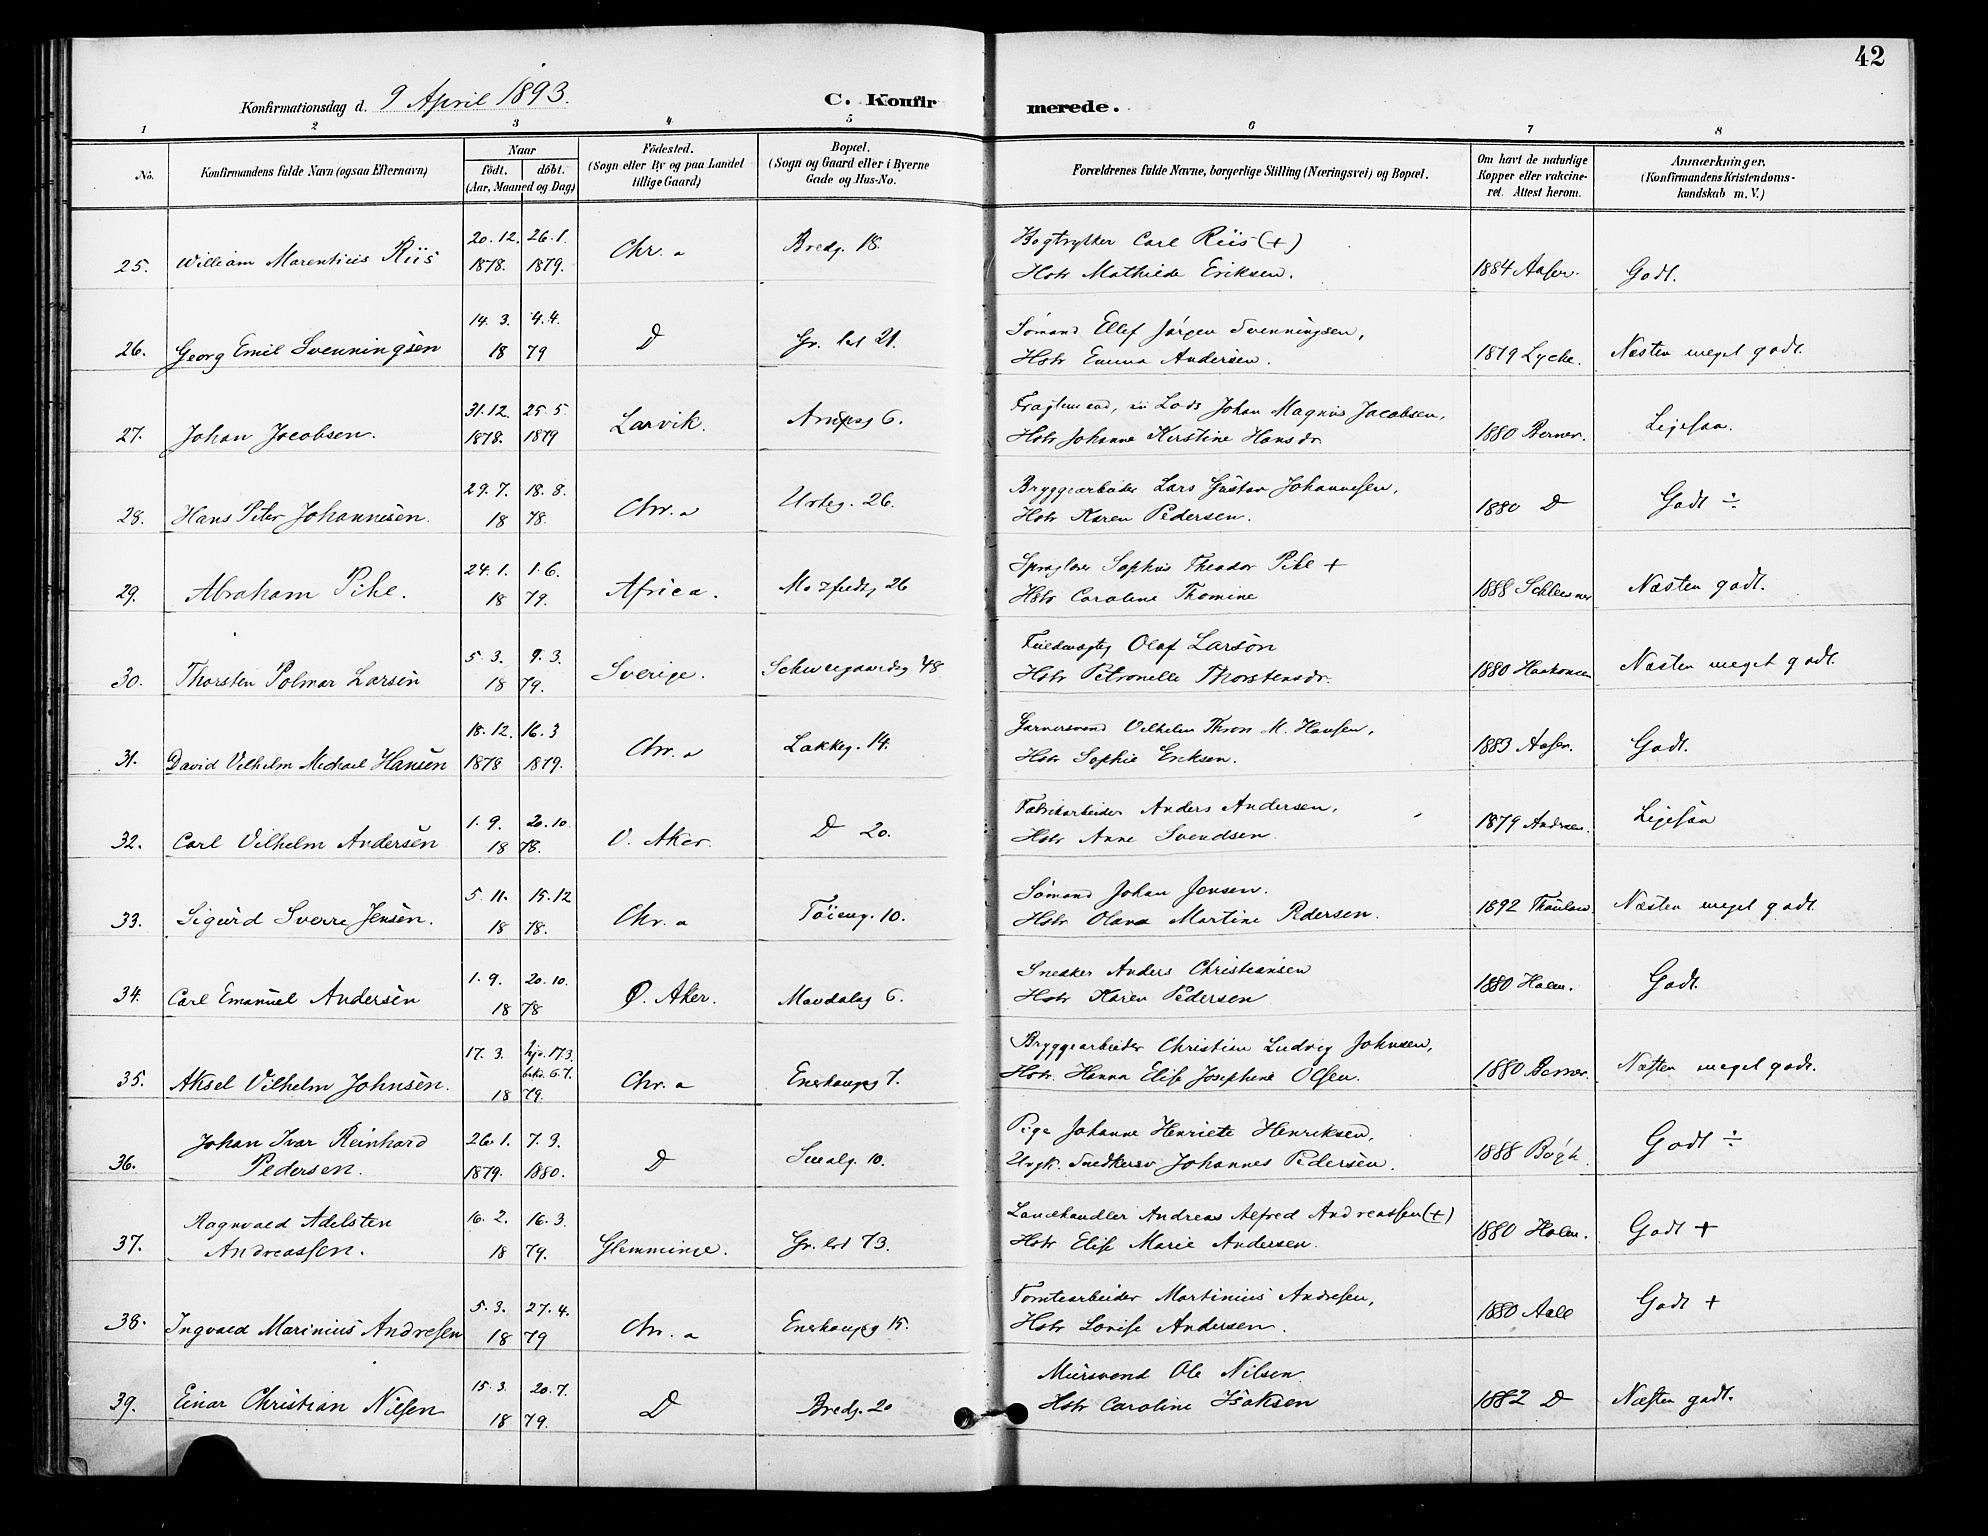 42
Konfirmationsdag d. 9 April 1893. C. Konfirmerede.
1 2 3 4 5 6 7 8
No. Konfirmandens fulde Navn (ogsaa Efternavn) Naar født. døbt. (Aar, Maaned og Dag) Fødested. (Sogn eller By og paa Landet tillige Gaard) Bopæl. (Sogn og Gaard eller i Byerne Gade og Hus-No. Forældrenes fulde Navne, borgerlige Stilling (Næringsvei) og Bopæl. Om havt de naturlige Kopper eller vakcineret. Attest herom. Anmærkninger. (Konfirmandens Kristendomskundskab m. V.)
25. William Marentius Riis 20.12. 1878. 26.1. 1879. Chr.a Bredg. 18. Bogtrykker Carl Riis (+)
Hstr Mathilde Eriksen. 1884 Aaser. Godt.
26. Georg Emil Svenningsen 14.3. 4.4. 18 79 D Gr. 21. Sømand Ellef Jørgen Svenningsen,
Hstr Emma Andersen. 1879 Lyche. Næsten meget godt.
27. Johan Jacobsen. 31.12. 1878. 25.5. 1879 Larvik. 6. Lods Johan Magnus Jacobsen,
Hstr Johanne Kirstine Hansdr 1880 Berner. Ligesaa.
28. Hans Peter Johannesen. 29.7. 18.8. 18 78. Chr.a Urteg. 26. Bryggearbeider Lars Gustav Johannesen,
Hstr Karen Pedersen. 1880 D Godt ÷
29. Abraham Pihl. 24.1. 1.6. 18 79. Africa. 26 Sophus Theodor Pihl +
Hstr Caroline Thomine 1888 Næsten godt.
30. Thorsten Polmar Larsen 5.3. 9.3. 18 79. Sverige. Schweegaardsg 48 Olaf Larson
Hstr Petronelle Thorstensdr. 1880 Haakonsen Næsten meget godt.
31. David Vilhelm Michael Hansen 18.12. 1878 16.3 1879. Chr.a Lakkeg. 14. Garversvend Vilhelm Thron M. Hansen,
Hstr Sophie Eriksen. 1883 Aaser. Godt.
32. Carl Vilhelm Andersen 1.9. 20.10. 18 78. V. Aker. D 20. Fabrikarbeider Anders Andersen,
Hstr Anne Svendsen. 1879 Ligesaa
33. Sigurd Sverre Jensen. 5.11. 15.12 18 78. Chr.a Tøieng. 10. Sømand Johan Jensen.
Hstr Olava Martine Pedersen. 1892 Thaulow Næsten meget godt.
34. Carl Emanuel Andersen 1.9. 20.10. 18 78 Ø. Aker. Mandalsg 6. Snedker Anders Christiansen
Hstr Karen Pedersen 1880 Holm. Godt.
35. Aksel Vilhelm Johnsen. 17.3. hjd. 17.3. bekr. 6.7. 18 79. Chr.a Enerhaugsg 7. Bryggearbeider Christian Ludvig Johnsen,
Hstr. Hanna Elise Josephine Olsen. 1880 Berner. Næsten meget godt.
36. Johan Ivar Reinhard
Pedersen. 26.1. 1879. 7.3. 1880. D Smalg. 10. Pige Johanne Henriete Henriksen,
Ungk. Snedkersv Johannes Pedersen. 1888 Bøgh. Godt ÷
37. Ragnvald Adelsten
Andreassen. 16.2. 16.3. 18 79. Glemminge. Gr. 73. Landhandler Andreas Alfred Andreassen (+)
Hstr Elise Marie Andersen. 1880 Holm. Godt +
38. Ingvald Marinius Andresen 5.3. 27.4. 18 79 Chr.a Enerhaugsg 15. Tomtearbeider Martinius Andresen,
Hstr Lovise Andersen. 1880 Aall Godt +
39. Einar Christian Nilsen 15.3. 20.7. 18 79. D Bredg. 20 Mursvend Ole Nilsen.
Hstr Caroline Isaksen 1882 D Næsten godt.